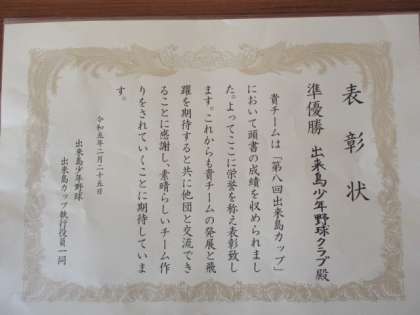 表彰状
準優勝 出来島少年野球クラブ殿
貴チームは「第八回出来島カップ」
において頭書の成績を収められまし
た。よってここに栄誉を称え表彰致し
ます。これからも貴チームの発展と飛
躍を期待すると共に他団と交流でき
ることに感謝し、素晴らしいチーム作
りをされていくことに期待していま
す。
令和五年二月二十五日
出来島少年野球
出来島カップ執行役員一同